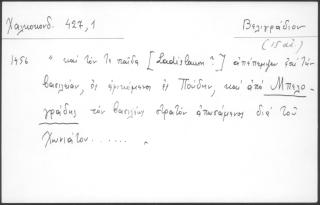 Χαλκοκονδ. 427,1
Βελιγράδιον
(15 αἰ.)
1456 " καὶ τόν τε παῖδα [Ladislaum?] ἀπέπεμψεν ἐπὶ τὴν
βασιλείαν, ὃς ἀφικόμενος ἐς Πούδην, καὶ ἀπὸ Μπελο-
γράδης τὸν βασιλέως στρατὸν ἀπωσάμενος διὰ τοῦ
Χωνιάτου......